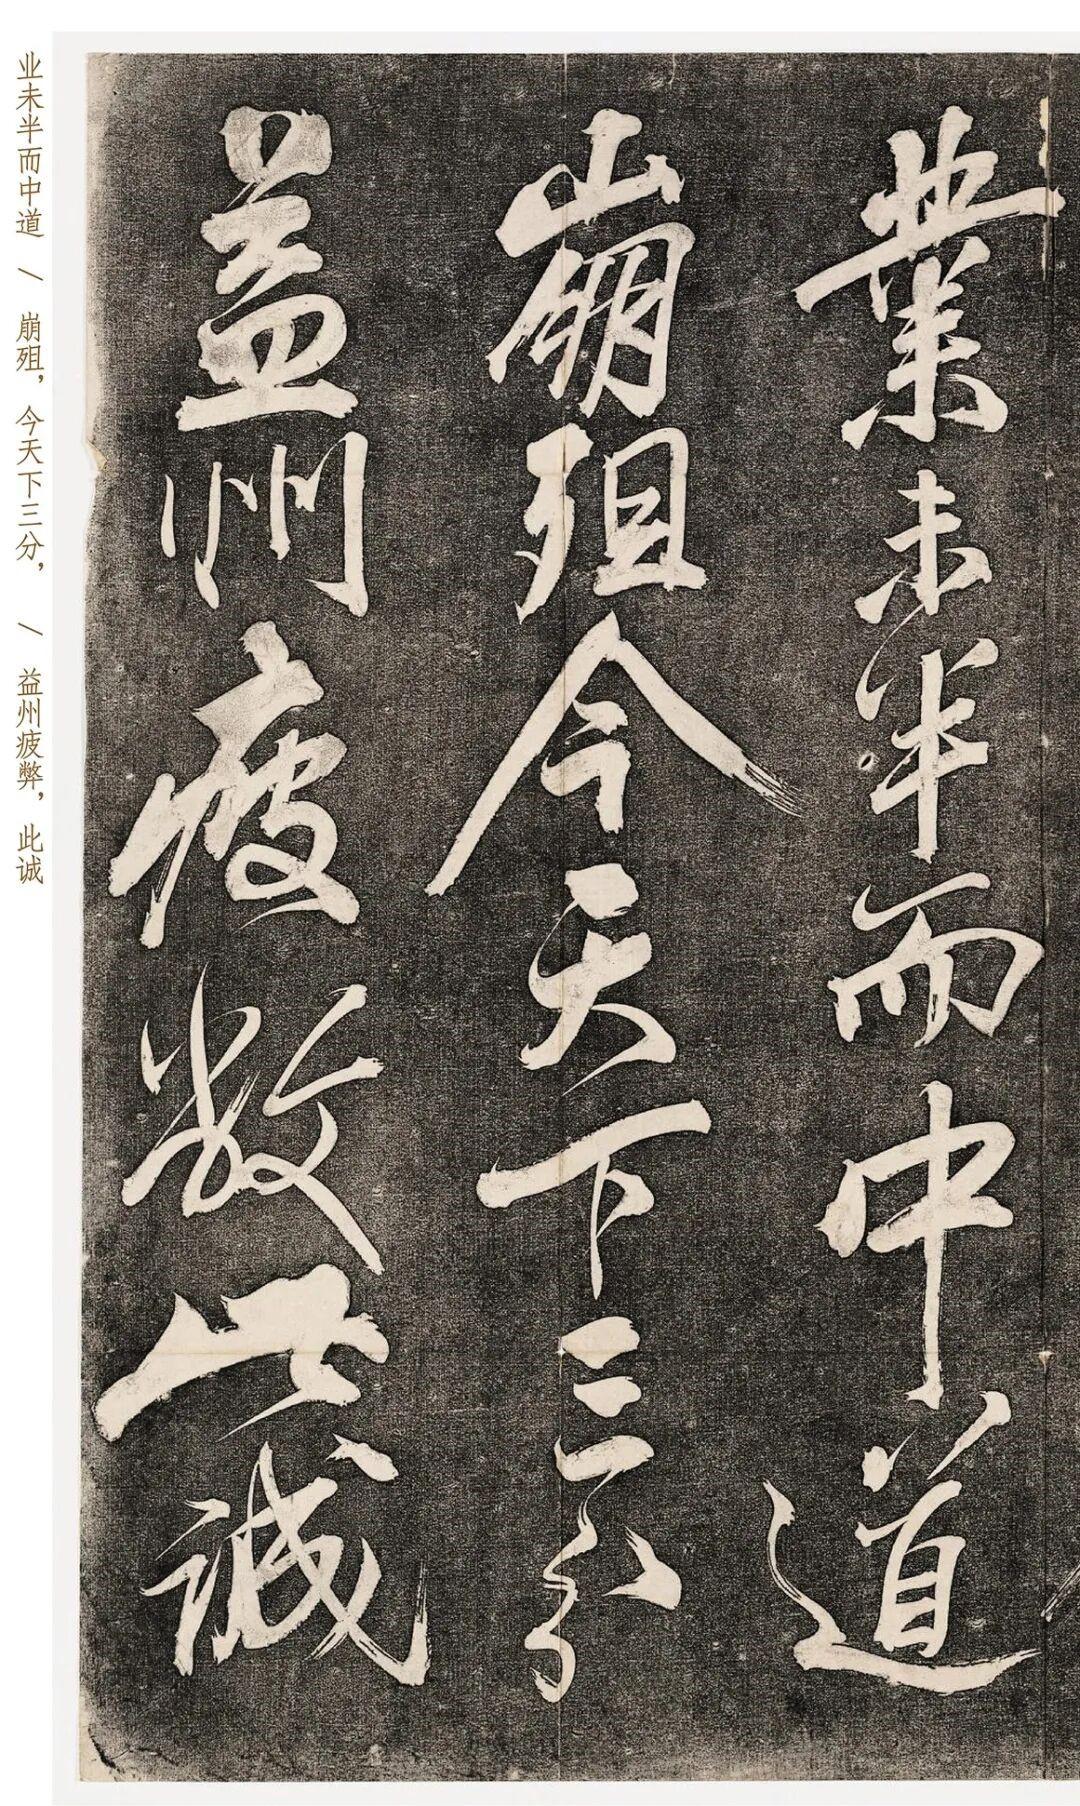 業未半而中道
崩殂今天下三分
益州疲弊此誠
业未半而中道 / 崩殂，今天下三分， / 益州疲弊，此诚